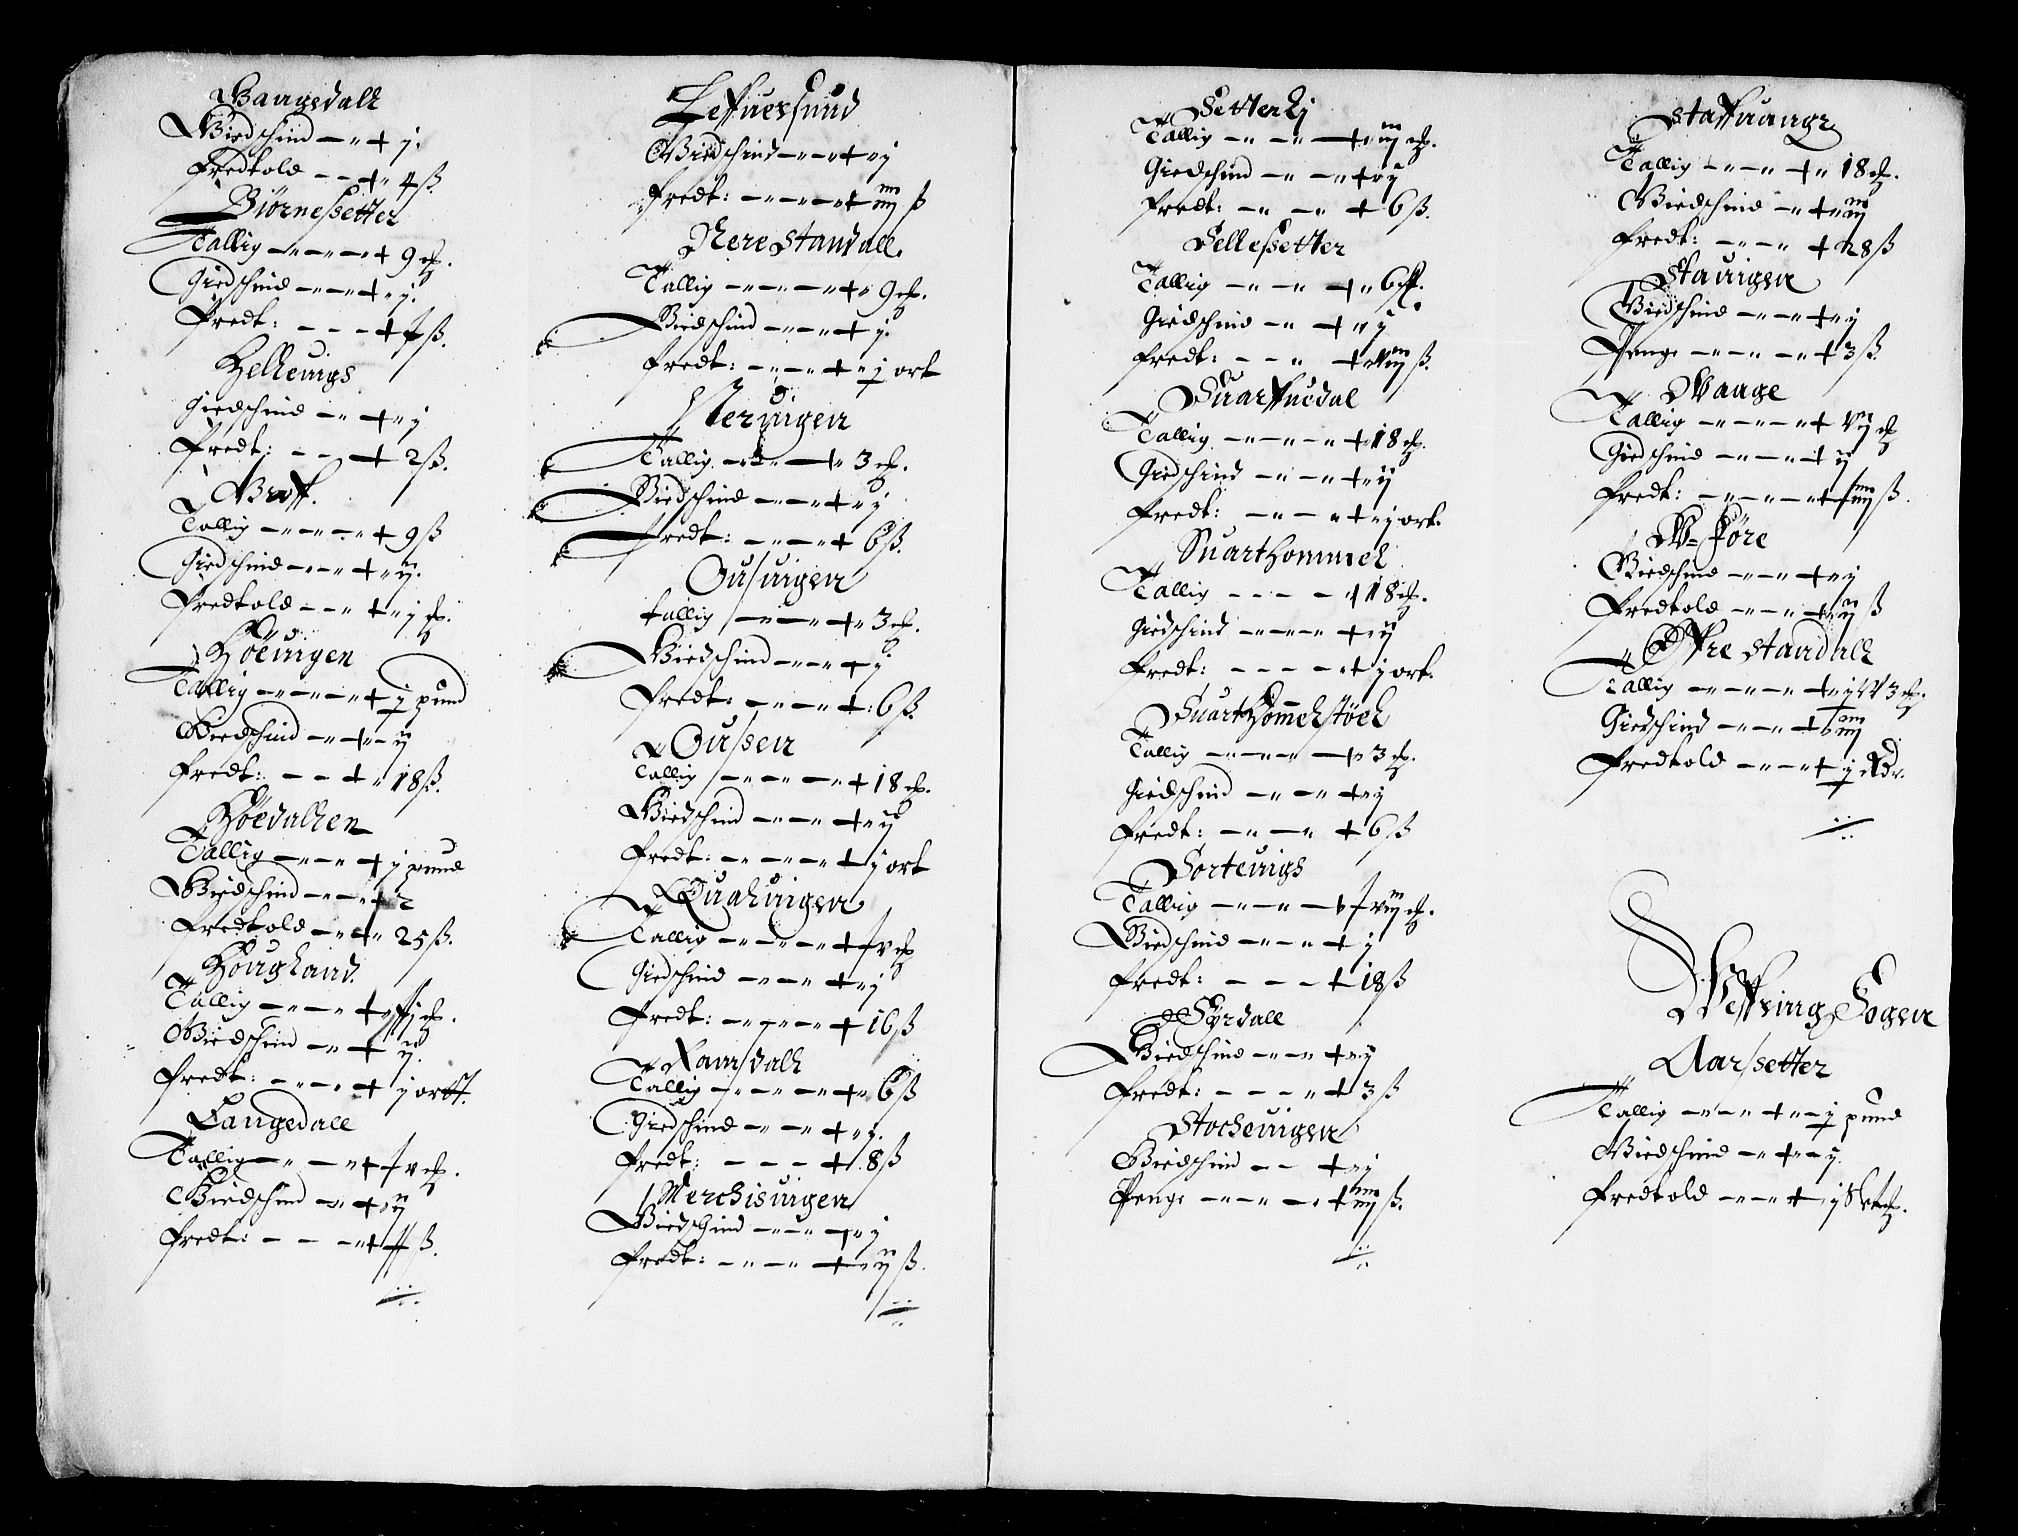 Bangsdall
Giedschind - - + j
Fredtold - - + 4 ß.
Biørnessetter
Tallig - - - + 9 ch.
Giedschind - - - + j.
Fredt: - - - + 4 ß.
Helleuigs
Giedschind - + j
Fredt: - - + 2 ß.
Groff.
Tallig - - - - + 9 ß
Giedschind - - - + ij.
Fredtold - - - + j ch.
Höeuigen
Tallig - - - - + j pund
Giedschind - + - ij
Fredt: - - + 18 ß.
Höedallen
Tallig - - - + j pund
Giedschind - - - + 2
Fredtold - + 25 ß.
Hougland.
Tallig - - - + ch.
Giedschind - + ij.
Fredt: - - - + j ortt.
Langedall
Tallig - - - + v ch.
Giedschind - + ij
Fredt: - - - + ß.
Leffuersund
Giedschind - - + j
Fredt: - - - - + iiij ß
Nere Standall.
Tallig - - - - + 9 ch.
Giedschind - - - + j
Fredt: - - - + j ort
Neruigen
Tallig - - + 3 ch.
Giedschind - - - + j
Fredt: - - - + 6 ß.
Ousuigen
Tallig - - - + 3 ch.
Giedschind - - - + j
Fredt: - - - - + 6 ß.
Oussen
Tallig - - - - + 18 ch.
Giedschind - - - + ij
Fredt: - - - - + j ort
Qualuigen
Tallig - - - - + v ch
Giedschind - - - + j
Fredt: - - - - + 16 ß
Ramsdall
Tallig - - - - + 6 ß
Giedschind - - - + j.
Fredt: - - - + 8 ß
Merchisuigen
Giedschind - - - + j
Fredt: - - - + iij ß.
Setterlj
Tallig - - - + iij ch.
Giedschind - - + ij
Fredt: - - + 6 ß.
Sellessetter
Tallig - - + 6 ch.
Giedschind - + ij
Fredt: - - + viij ß.
Suarffuedal
Tallig - - - - + 18 ch.
Giedschind - - - + ij
Fredt: - - - + j ort.
Suarthommel
Tallig - - - - + 18 ch.
Giedschind - - - + ij
Fredt: - - - - + j ort.
Suarthommelstöel
Tallig - - - - + 3 ch.
Giedschind - - + ij
Fredt: - - - + 6 ß
Sorteuigs
Tallig - - - + viij ch.
Giedschind - - - + ij
Fredt: - - - + 18 ß
Syrdall
Giedschind - - - + ij
Fredt: - - - - + 3 ß
Stocheuigen
Giedschind - - + ij
Penge - - - - + iiij ß.
Staffuange
Tallig - - - + 18 ch.
Giedschind - + iij
Fredt: - - - + 28 ß
Stauigen
Giedschind - - - + j
Penge - - - - + 3 ß.
Waage
Tallig - - - - + vij ch
Giedschind - - - + ij
Fredt: - - - - + iiij ß.
W=före
Giedschind - - - + j
Fredtold - - - + iij ß
Öffre Standall
Tallig - - - - + 3 ch.
Giedschind - - - + iiij
Fredtold - - - + j
Weffring Sogen
Aarssetter
Tallig - - - + - j pund
Giedschind - + - j.
Fredtold - - - +